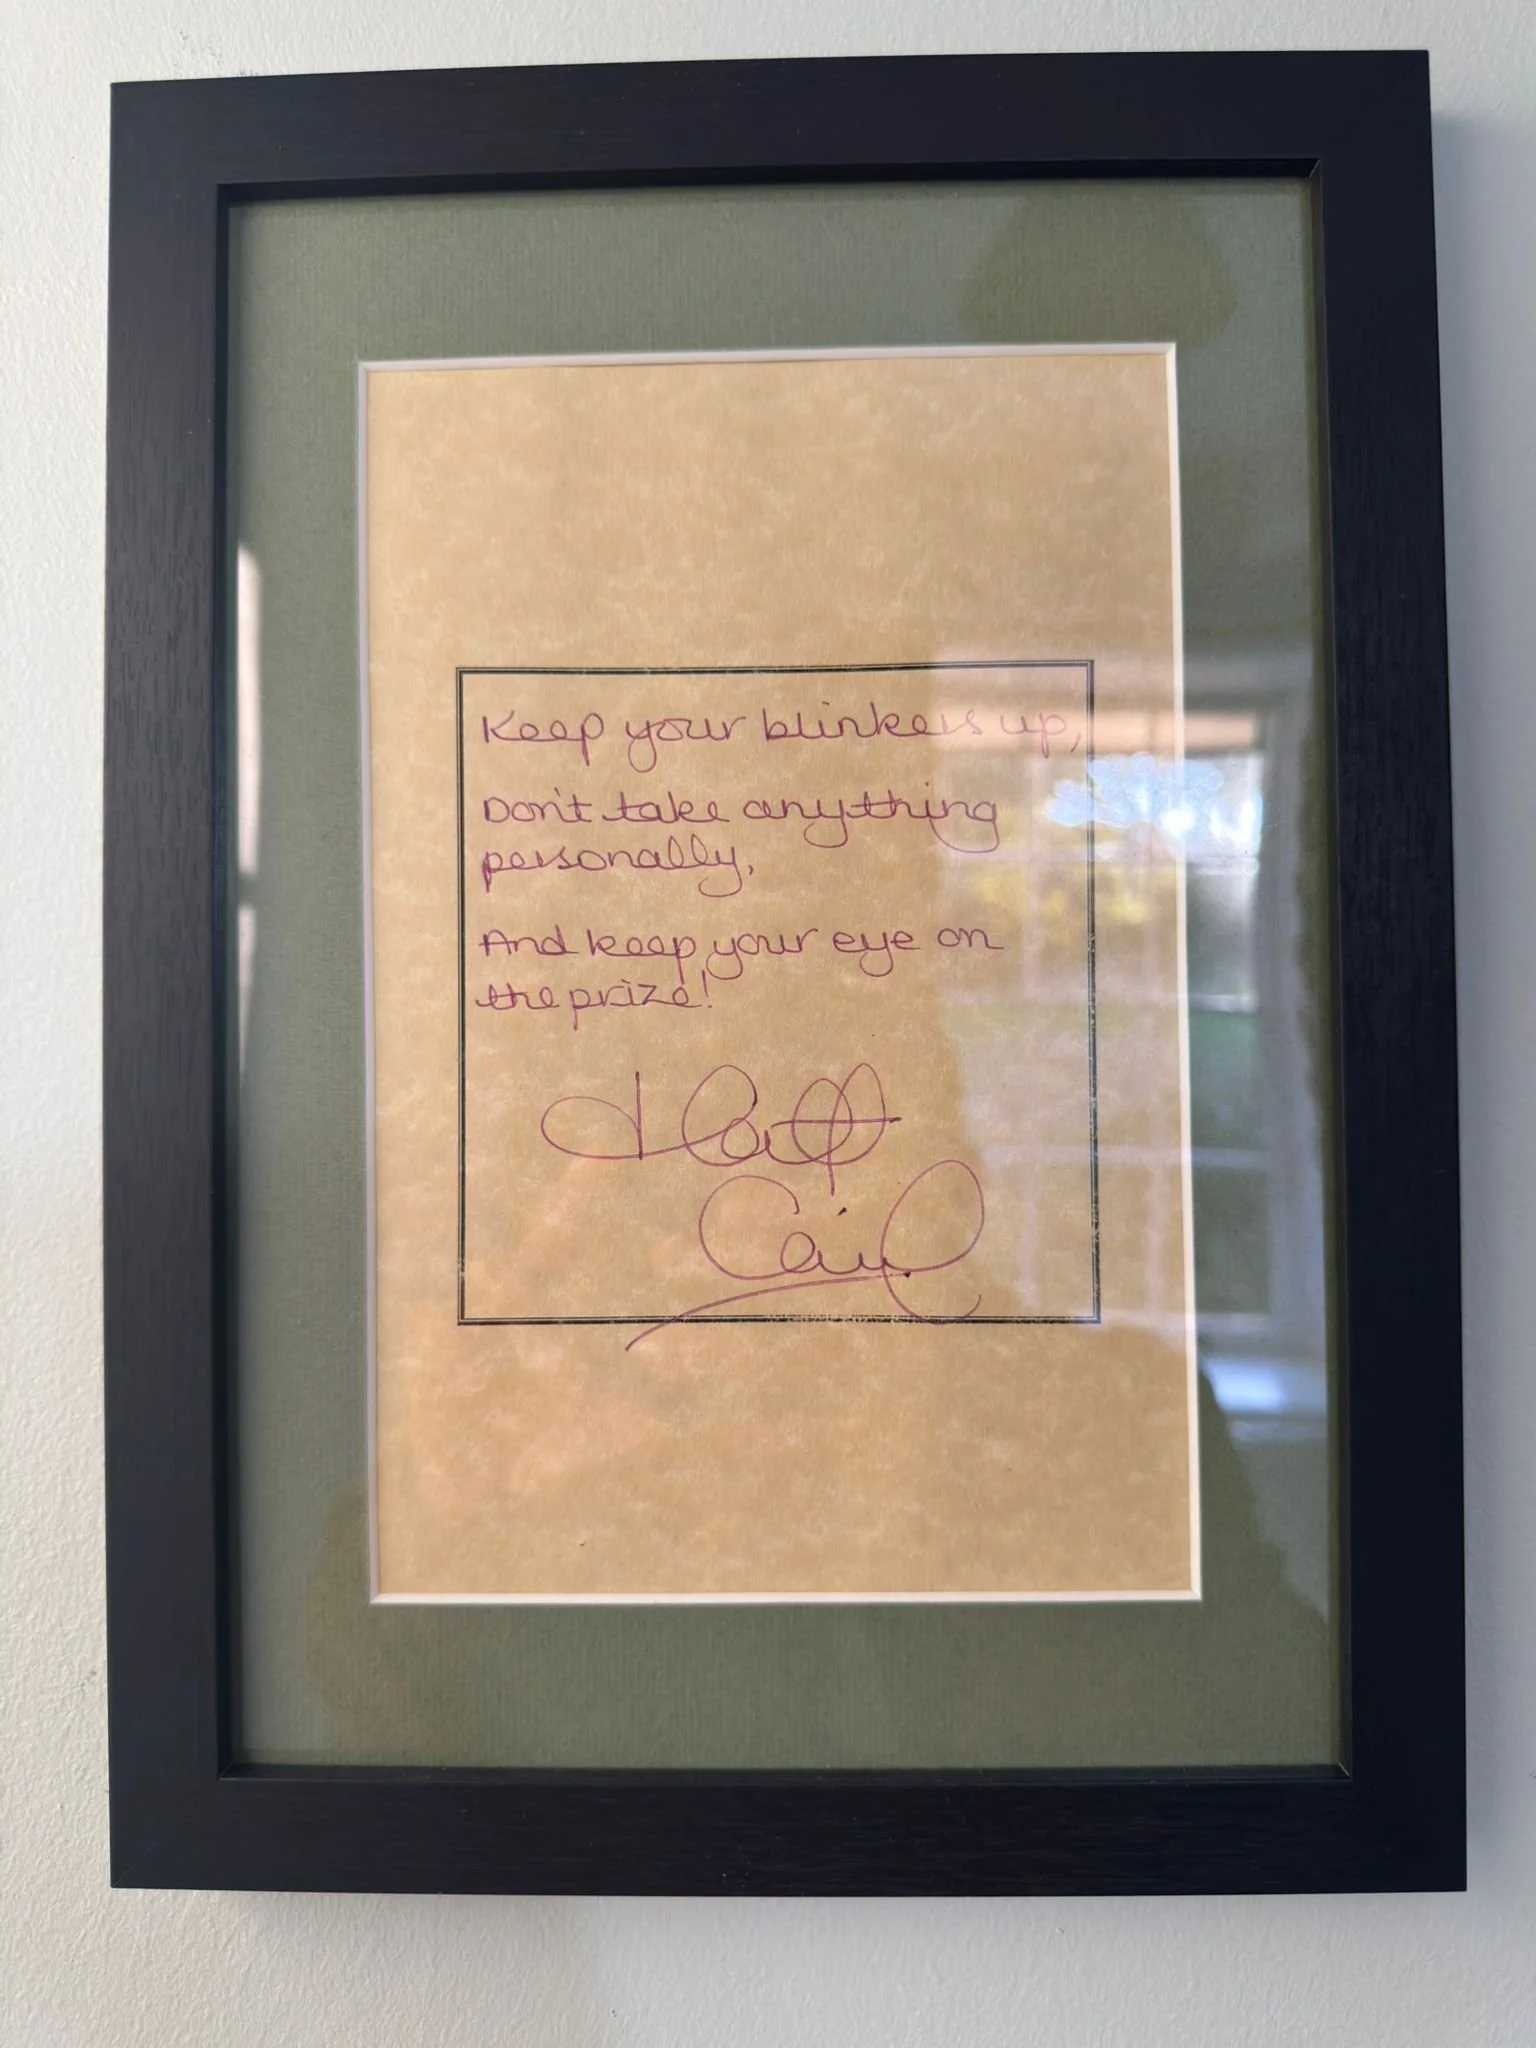 Keep your blinkers up,
Don't take anything
personally,
And keep your eye on
the prize!
Matt